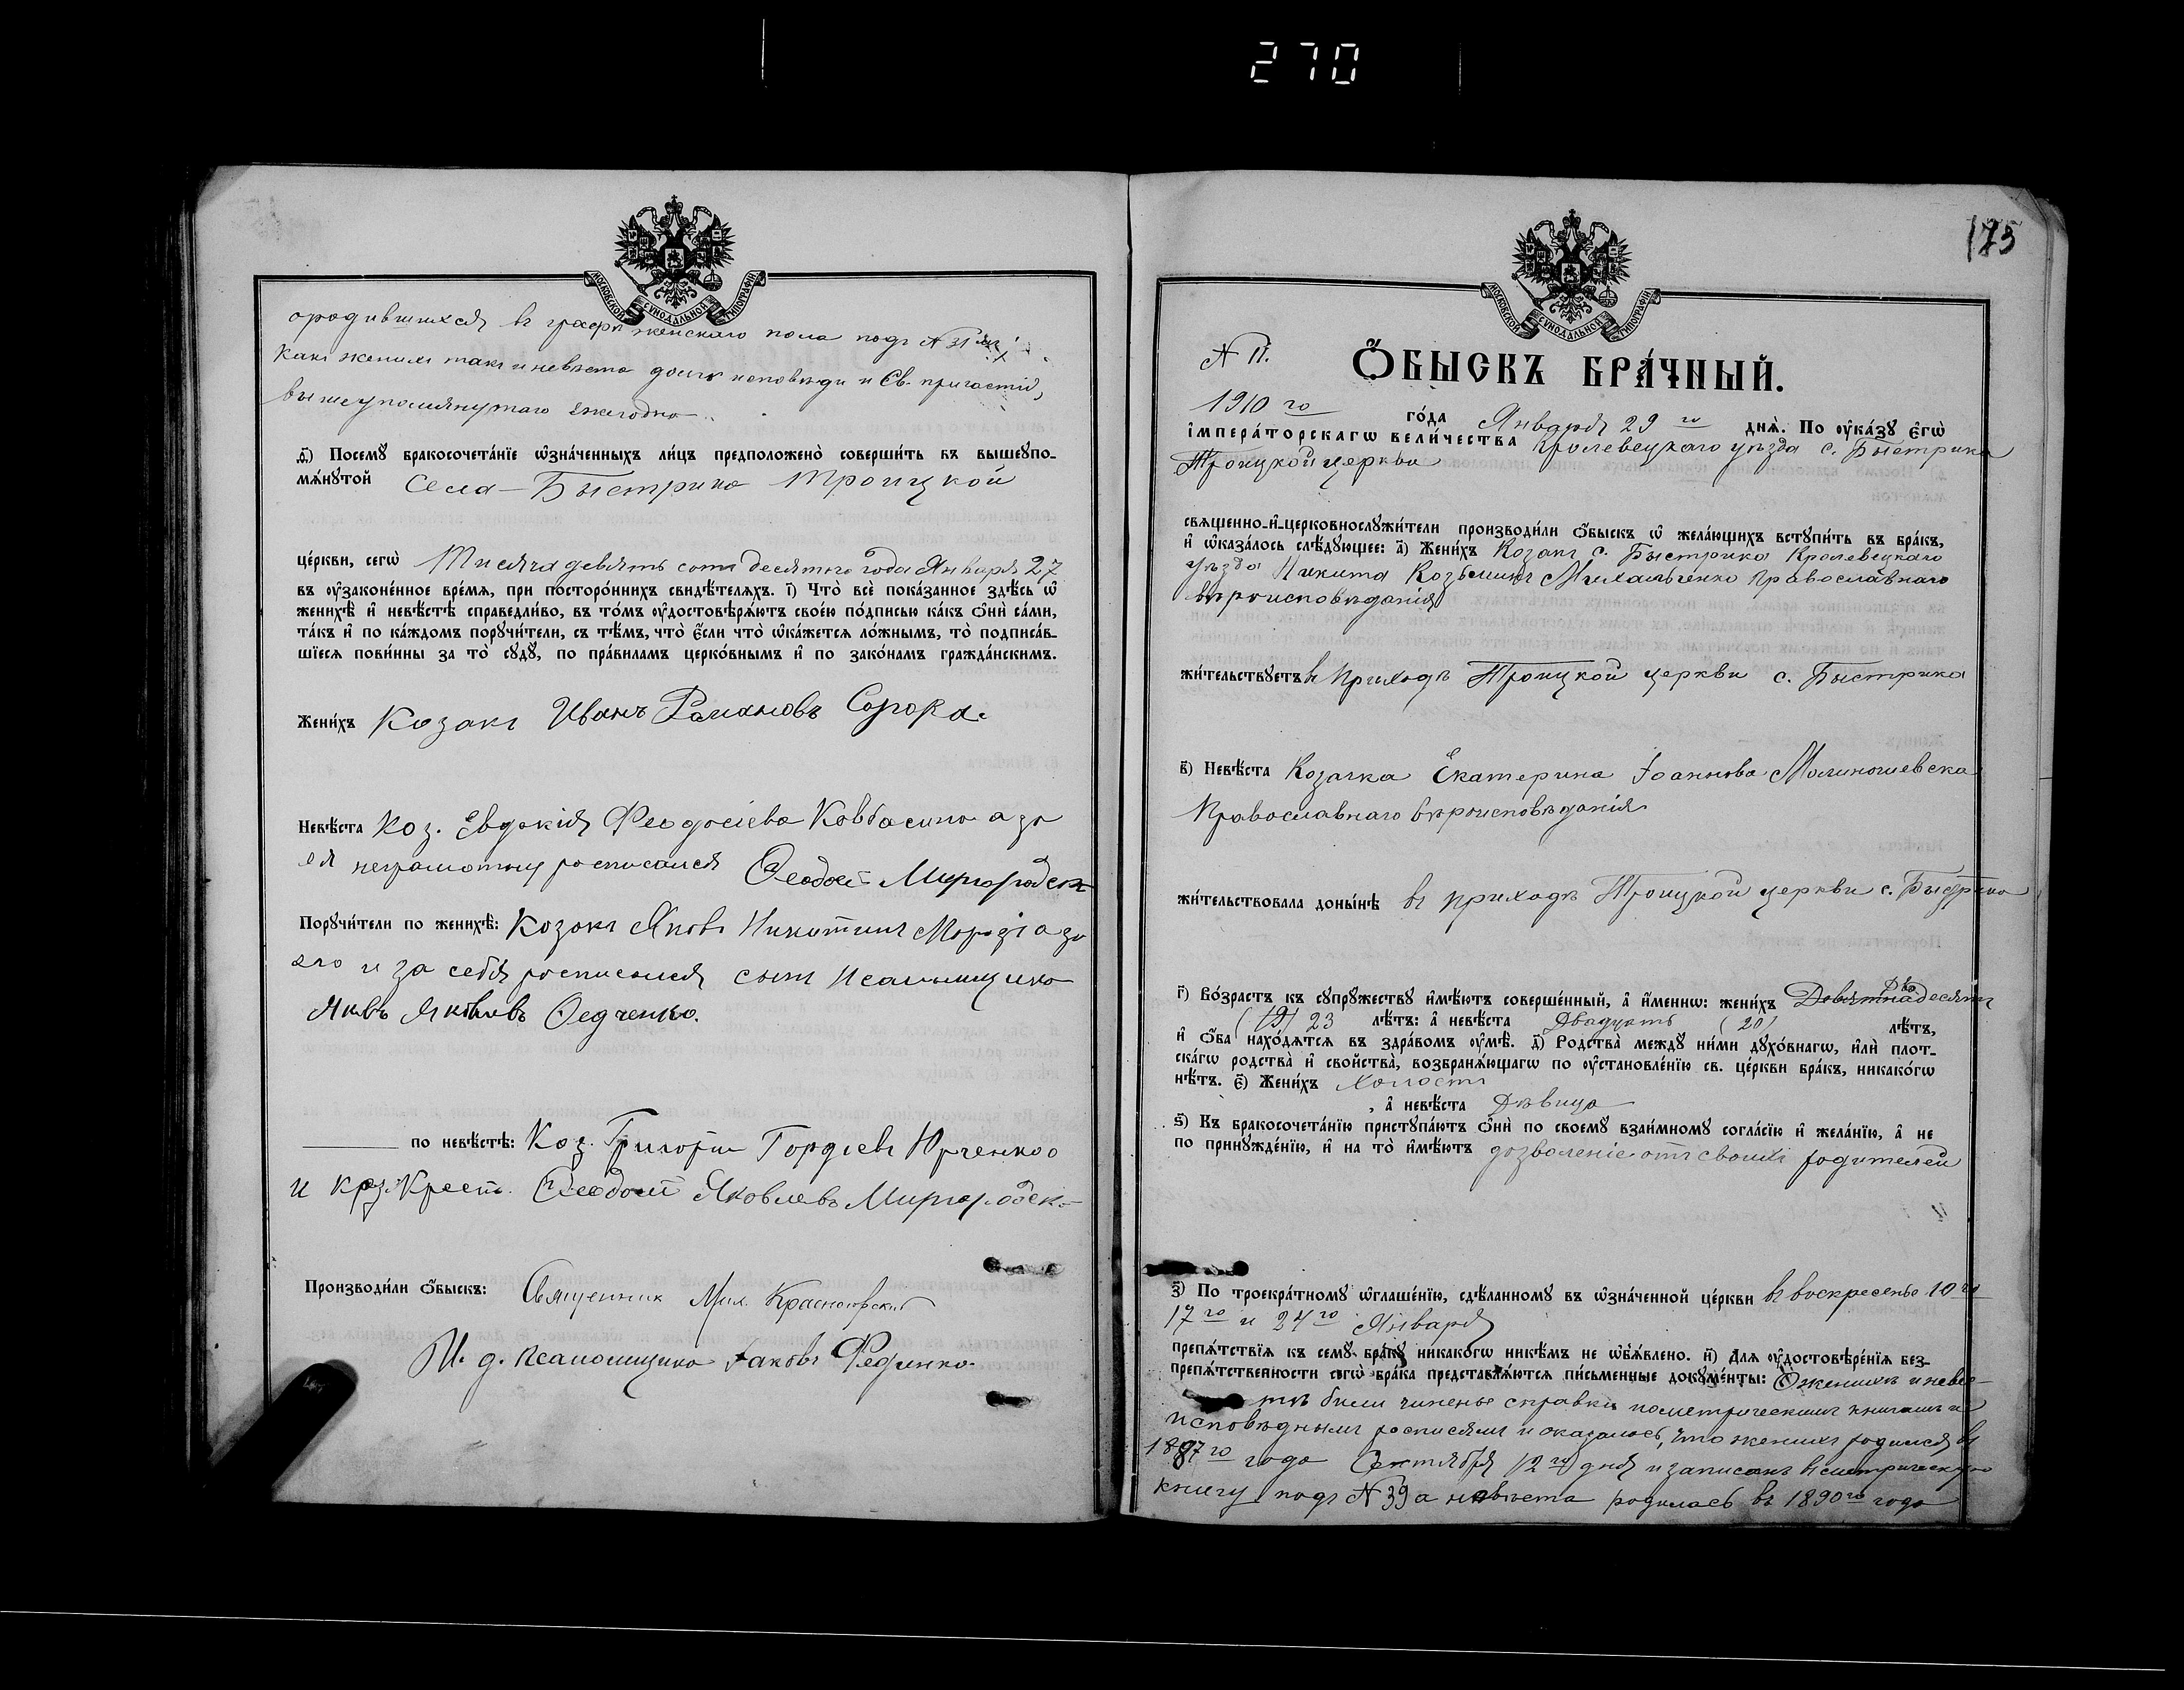 270
МОСКОВСКОЙ СѴНОДАЛЬНОЙ ТИПОГРАФІИ
о родившихся въ графѣ женскаго пола подъ № 31
Какъ женихъ такъ и невѣста долгъ исповѣди и Св. причастія,
вышеупомянутаго ежегодно
Посемꙋ бракосочета́нїе ѡ҆зна́ченныхъ ли́цъ предположено̀ соверши́ть въ вышеꙋпо-
мѧ́нꙋтой Села Быстрика Троицкой
це́ркви, сегѡ̀ Тисяча девять сотъ десятого года Января 27
въ ᲂу҆зако́ненное вре́мѧ, при посторо́ннихъ свидѣ́телѧхъ. і҃) Что̀ всѐ пока́занное здѣ́сь ѡ҆
женихѣ̀ и҆ невѣ́стѣ справедли́во, въ то́мъ ᲂу҆достовѣрѧ́ютъ свое́ю по́дписью ка́къ ѻ҆нѝ са́ми,
та́къ и҆ по ка́ждомъ порꙋчи́тели, съ тѣ́мъ, что̀ є҆́сли что̀ ѡ҆ка́жетсѧ ло́жнымъ, то̀ подписа́в-
шїесѧ пови́нны за то̀ сꙋдꙋ̀, по пра́виламъ церко́внымъ и҆ по зако́намъ гражда́нскимъ.
Жени́хъ Козакъ Иванъ Романовъ Сорока.
Невѣ́ста Коз. Евдокія Феодосіева Ковбасина а за
ея неграмотну росписался Ѳеодот Миргородск
Порꙋчи́тели по женихѣ̀: Козакъ Яковъ Никитинъ а за
его и за себя росписался сын Псаломщика
Яковъ Яковлевъ Ѳедченко.
по невѣ́стѣ: Коз. Григорій Гордіевъ Юрченко
и Крест. Ѳеодот Яковлевъ Миргородск
Производи́ли ѻ҆́быскъ: Священник Мих. Красновскій
И. д. псаломщика Іаковъ Федченко.
175
МОСКОВСКОЙ СѴНОДАЛЬНОЙ ТИПОГРАФІИ
№ 11.
Ѻ҆́БЫСКЪ БРА́ЧНЫЙ.
1910 го го́да Января 29 го днѧ̀. По ᲂу҆ка́зꙋ є҆гѡ̀
і҆мпера́торскагѡ вели́чества Кролевецкаго уѣзда с. Быстрика
Троицкой церкви
свѧщенно-и҆-церковнослꙋжи́тели производи́ли ѻ҆́быскъ ѡ҆ жела́ющихъ встꙋпи́ть въ бра́къ,
и҆ ѡ҆каза́лось слѣ́дꙋющее: а҃) Жени́хъ Козакъ с. Быстрика Кролевецкаго
уѣзда Никита Козьминъ Михальченко православнаго
вѣроисповѣданія
жи́тельствꙋетъ въ приходѣ Троицкой церкви с. Быстрика
в҃) Невѣ́ста Козачка Екатерина Іоаннова
Православнаго вѣроисповѣданія
жи́тельствовала доны́нѣ въ приходѣ Троицкой церкви с. Быстрика
г҃) Во́зрастъ къ сꙋпрꙋ́жествꙋ и҆мѣ́ютъ соверше́нный, а҆ и҆́меннѡ: жени́хъ Девятнадесять
(19) 23 лѣ́тъ: а҆ невѣ́ста Двадцать (20) лѣ́тъ,
и҆ ѻ҆́ба нахо́дѧтсѧ въ здра́вомъ ᲂу҆мѣ̀. д҃) Родства̀ междꙋ ни́ми дꙋхо́внагѡ, и҆лѝ плот-
ска́гѡ родства̀ и҆ свойства̀, возбранѧ́ющагѡ по ᲂу҆становле́нїю св. це́ркви бра́къ, никако́гѡ
нѣ́тъ. є҃) Жени́хъ Холостъ
, а҆ невѣ́ста Дѣвица
ѕ҃) Къ бракосочета́нїю пристꙋпа́ютъ ѻ҆нѝ по своемꙋ̀ взаи́мномꙋ согла́сїю и҆ жела́нїю, а҆ не
по принꙋжде́нїю, и҆ на то̀ и҆мѣ́ютъ дозволеніе отъ своихъ родителей
з҃) По троекра́тномꙋ ѡ҆глаше́нїю, сдѣ́ланномꙋ въ ѡ҆зна́ченной це́ркви въ воскресенье 10 го
17 го и 24 го Января
препѧ́тствїѧ къ семꙋ̀ бра́кꙋ никако́гѡ никѣ́мъ не ѡ҆бѧ́влено. и҃) Длѧ ᲂу҆достовѣре́нїѧ без-
препѧ́тственности сегѡ̀ бра́ка представлѧ́ютсѧ пи́сьменные докꙋме́нты: О женихѣ и невѣ-
стѣ были чинены справки по метрическимъ книгамъ и
исповѣднымъ росписямъ и оказалось, что женихъ родился въ
1887 го года Сентября 12 го дня и записанъ въ метрическую
книгу подъ № 39 а невѣста родилась въ 1890 го года